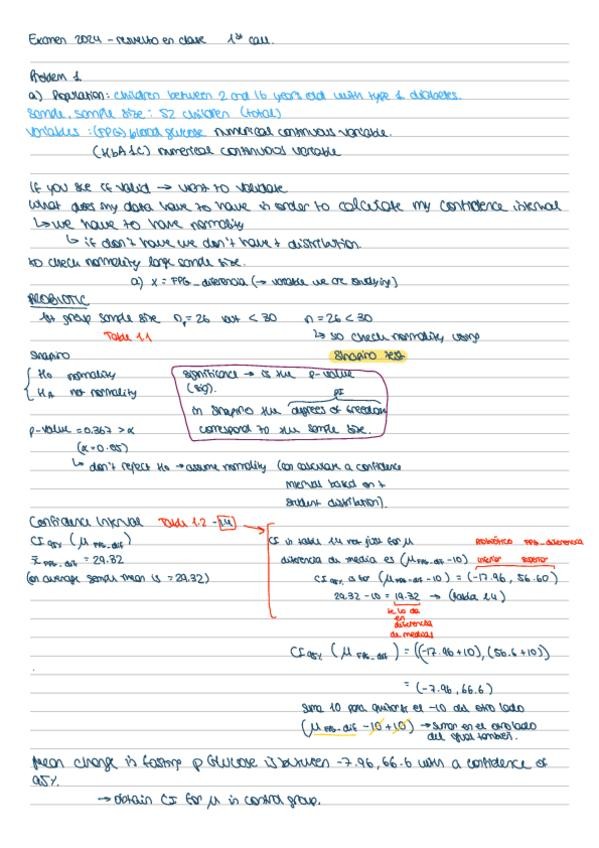 Examen 2024 - resuelto en clase 1st call.
Problem 1
a) Population: children between 2 and 16 years old with type 1 diabetes.
Sample, sample size: 52 children (total)
Variables: (FPG) blood glucose numerical continuous variable.
(HbA1C) numerical continuous variable
If you see if valid → want to validate
What does my data have to have in order to calculate my confidence interval
↳ we have to have normality
↳ if don't have we don't have t distribution.
to check normality large sample size.
a) x = FPG_diferencia (→ variable we are studying)
PROBIOTIC
1st group sample size n1 = 26 < 30 n = 26 < 30
Table 1.1 ↳ so check normality using
Shapiro Shapiro test
H0 normality
HA not normality
significance → is the p-value
(sig).
df
in Shapiro the degrees of freedom
correspond to the sample size.
p-value = 0.367 > α
(α = 0.05)
↳ don't reject H0 → assume normality (can calculate a confidence
interval based on t
student distribution).
Confidence Interval Table 1.2 - 1.4
CI 95% (μ FPG_dif)
x̄ FPG_dif = 29.32
(on average sample mean is = 29.32)
CI in table 1.4 not just for μ Probiótico FPG_diferencia
diferencia de media es (μ FPG_dif - 10) inferior superior
CI 95% for (μ FPG_dif - 10) = (-17.96, 56.60)
29.32 - 10 = 19.32 → (tabla 1.4)
te lo da
en
diferencia
de medias
CI 95% (μ FPG_dif) = ((-17.96 + 10), (56.6 + 10))
= (-7.96, 66.6)
suma 10 para quitarte el -10 del otro lado
(μ FPG_dif - 10 + 10) → sumar en el otro lado
del igual también.
Mean change in fasting p Glucose is between -7.96, 66.6 with a confidence of
95%.
→ obtain CI for μ in control group.